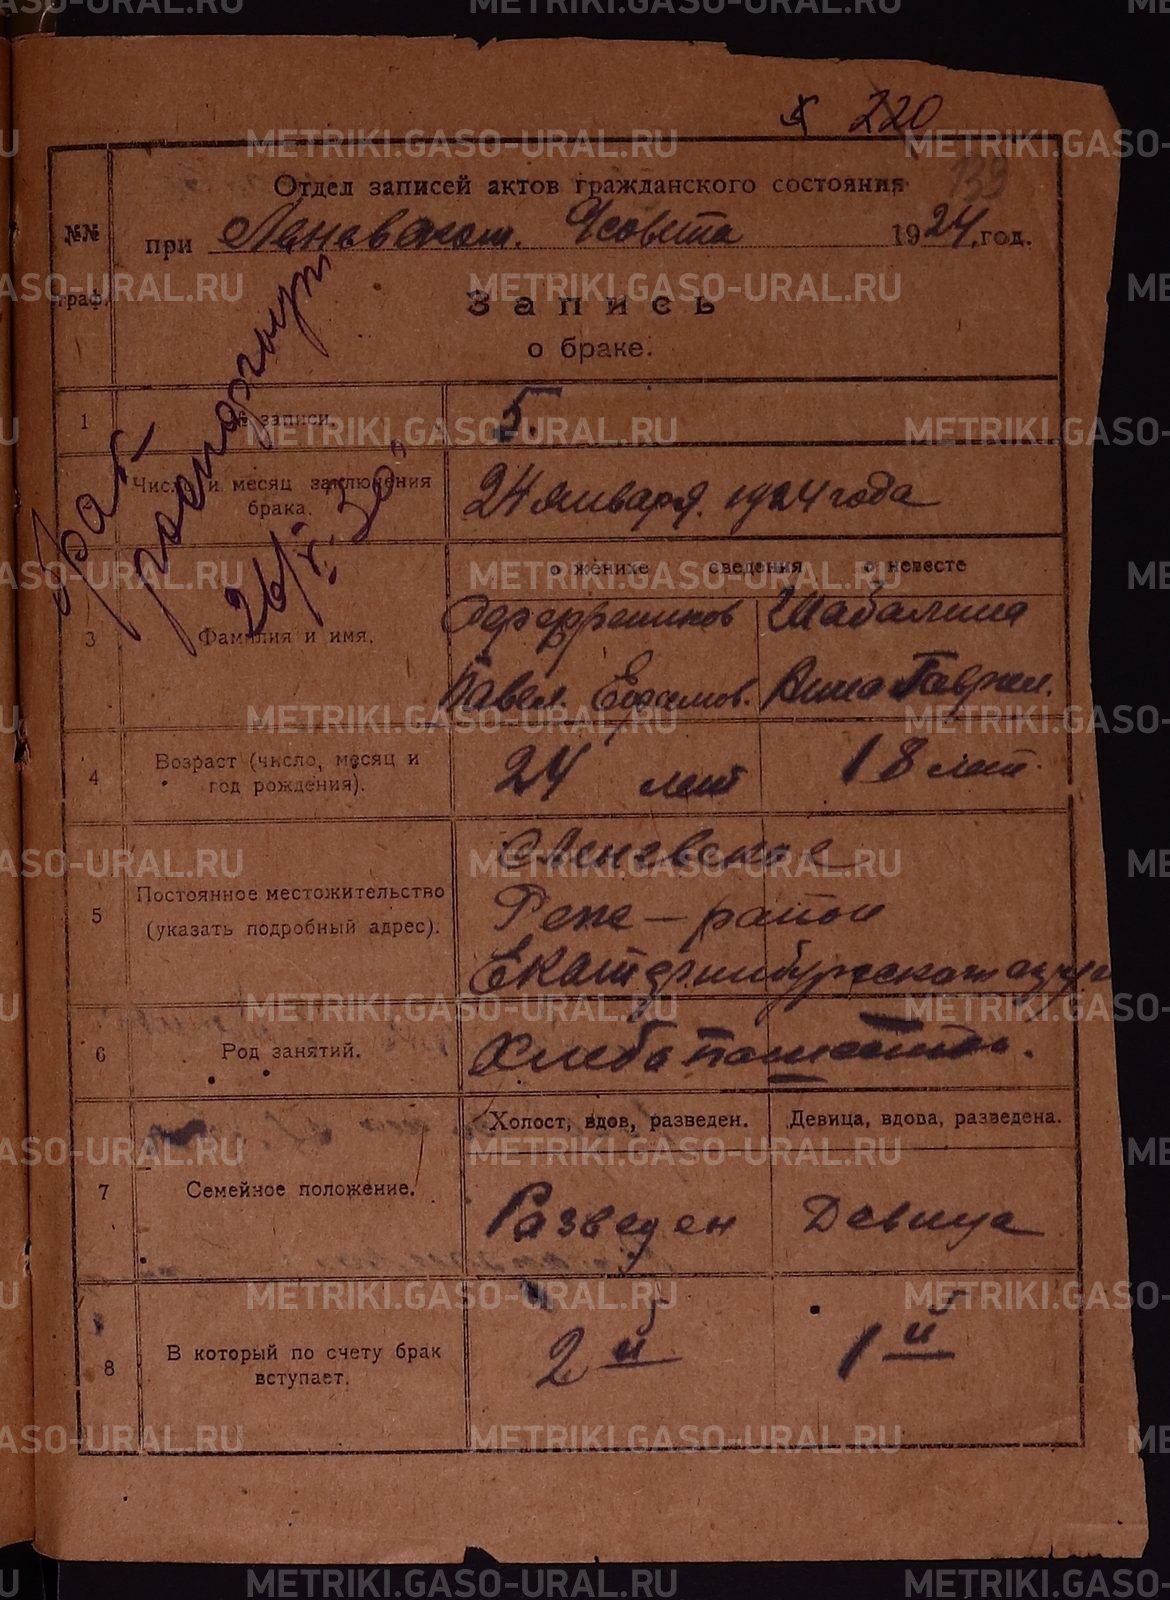 220
133
Отдел записей актов гражданского состояния
№№ граф.
при Леневском 1924 год.
Запись
о браке.
Брак расторгнут
26/V-30
1 № записи. 5.
Число и месяц заключения брака. 24 января. 1924 года
о женихе сведения о невесте
3 Фамилия и имя.
Шабалина
Павел. Ефимов. Анна Гаврил.
4 Возраст (число, месяц и год рождения). 24 лет 18 лет.
5 Постоянное местожительство (указать подробный адрес).
Леневское
Реже-район
Екатеринбургского округ
6 Род занятий. Хлебопашество.
Холост, вдов, разведен. Девица, вдова, разведена.
7 Семейное положение. Разведен Девица
8 В который по счету брак вступает. 2й 1й
METRIKI.GASO-URAL.RU